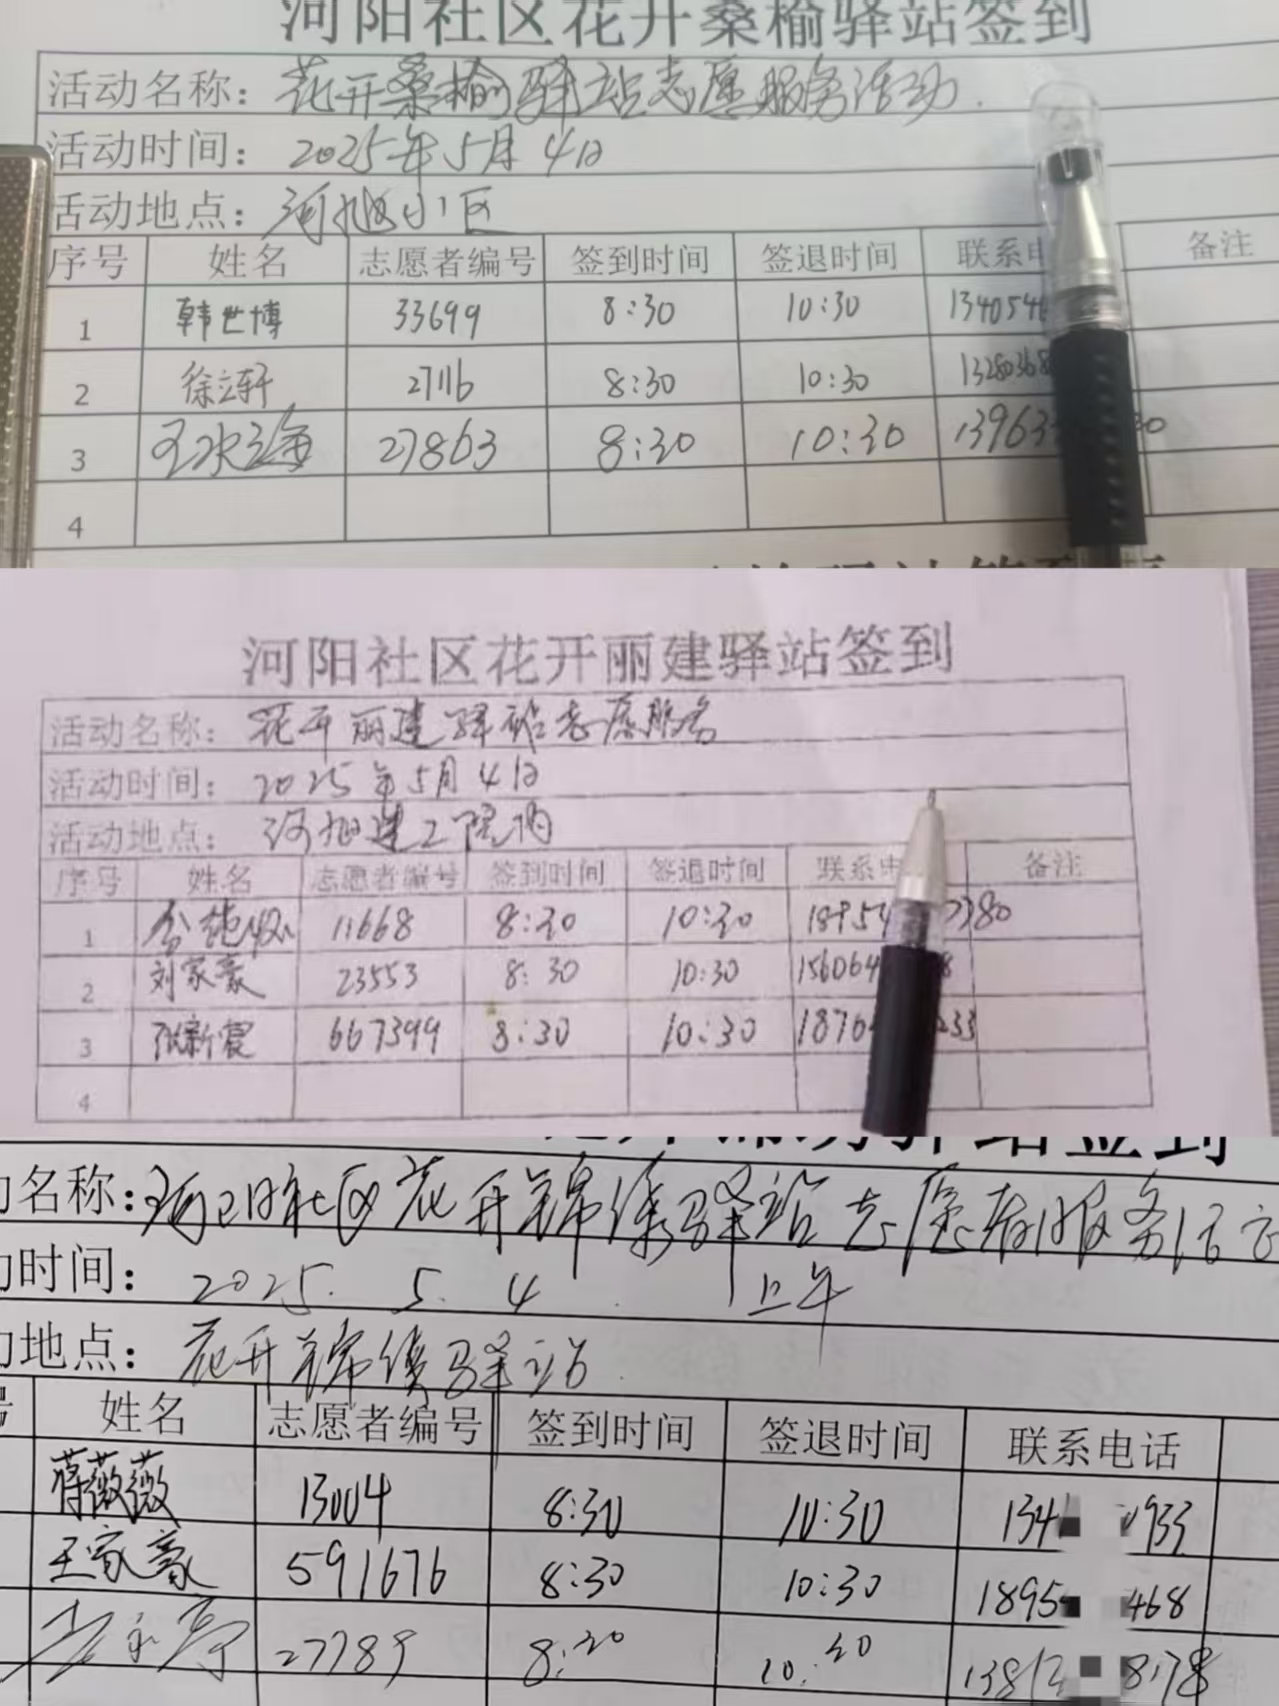 河阳社区花开桑榆驿站签到
活动名称：花开桑榆驿站志愿服务活动.
活动时间：2025年5月4日
活动地点：河旭小区
序号 姓名 志愿者编号 签到时间 签退时间 联系电 备注
1 韩世博 33699 8:30 10:30 134054
2 徐立轩 27116 8:30 10:30 1328036
3 27863 8:30 10:30 13963 30
4
河阳社区花开丽建驿站签到
活动名称：花开丽建驿站志愿服务
活动时间：2025年5月4日
活动地点：河旭建工院内
序号 姓名 志愿者编号 签到时间 签退时间 联系电 备注
1 11668 8:30 10:30 1895 7780
2 刘家豪 23553 8:30 10:30 156064 8
3 张新震 667399 8:30 10:30 1876 233
4
驿站签到
名称：河阳社区花开锦绣驿站志愿者服务活
时间：2025.5.4 上午
地点：花开锦绣驿站
号 姓名 志愿者编号 签到时间 签退时间 联系电话
蒋薇薇 13004 8:30 10:30 134 933
王家豪 591676 8:30 10:30 1895 468
27789 8:30 10:30 1381 8178